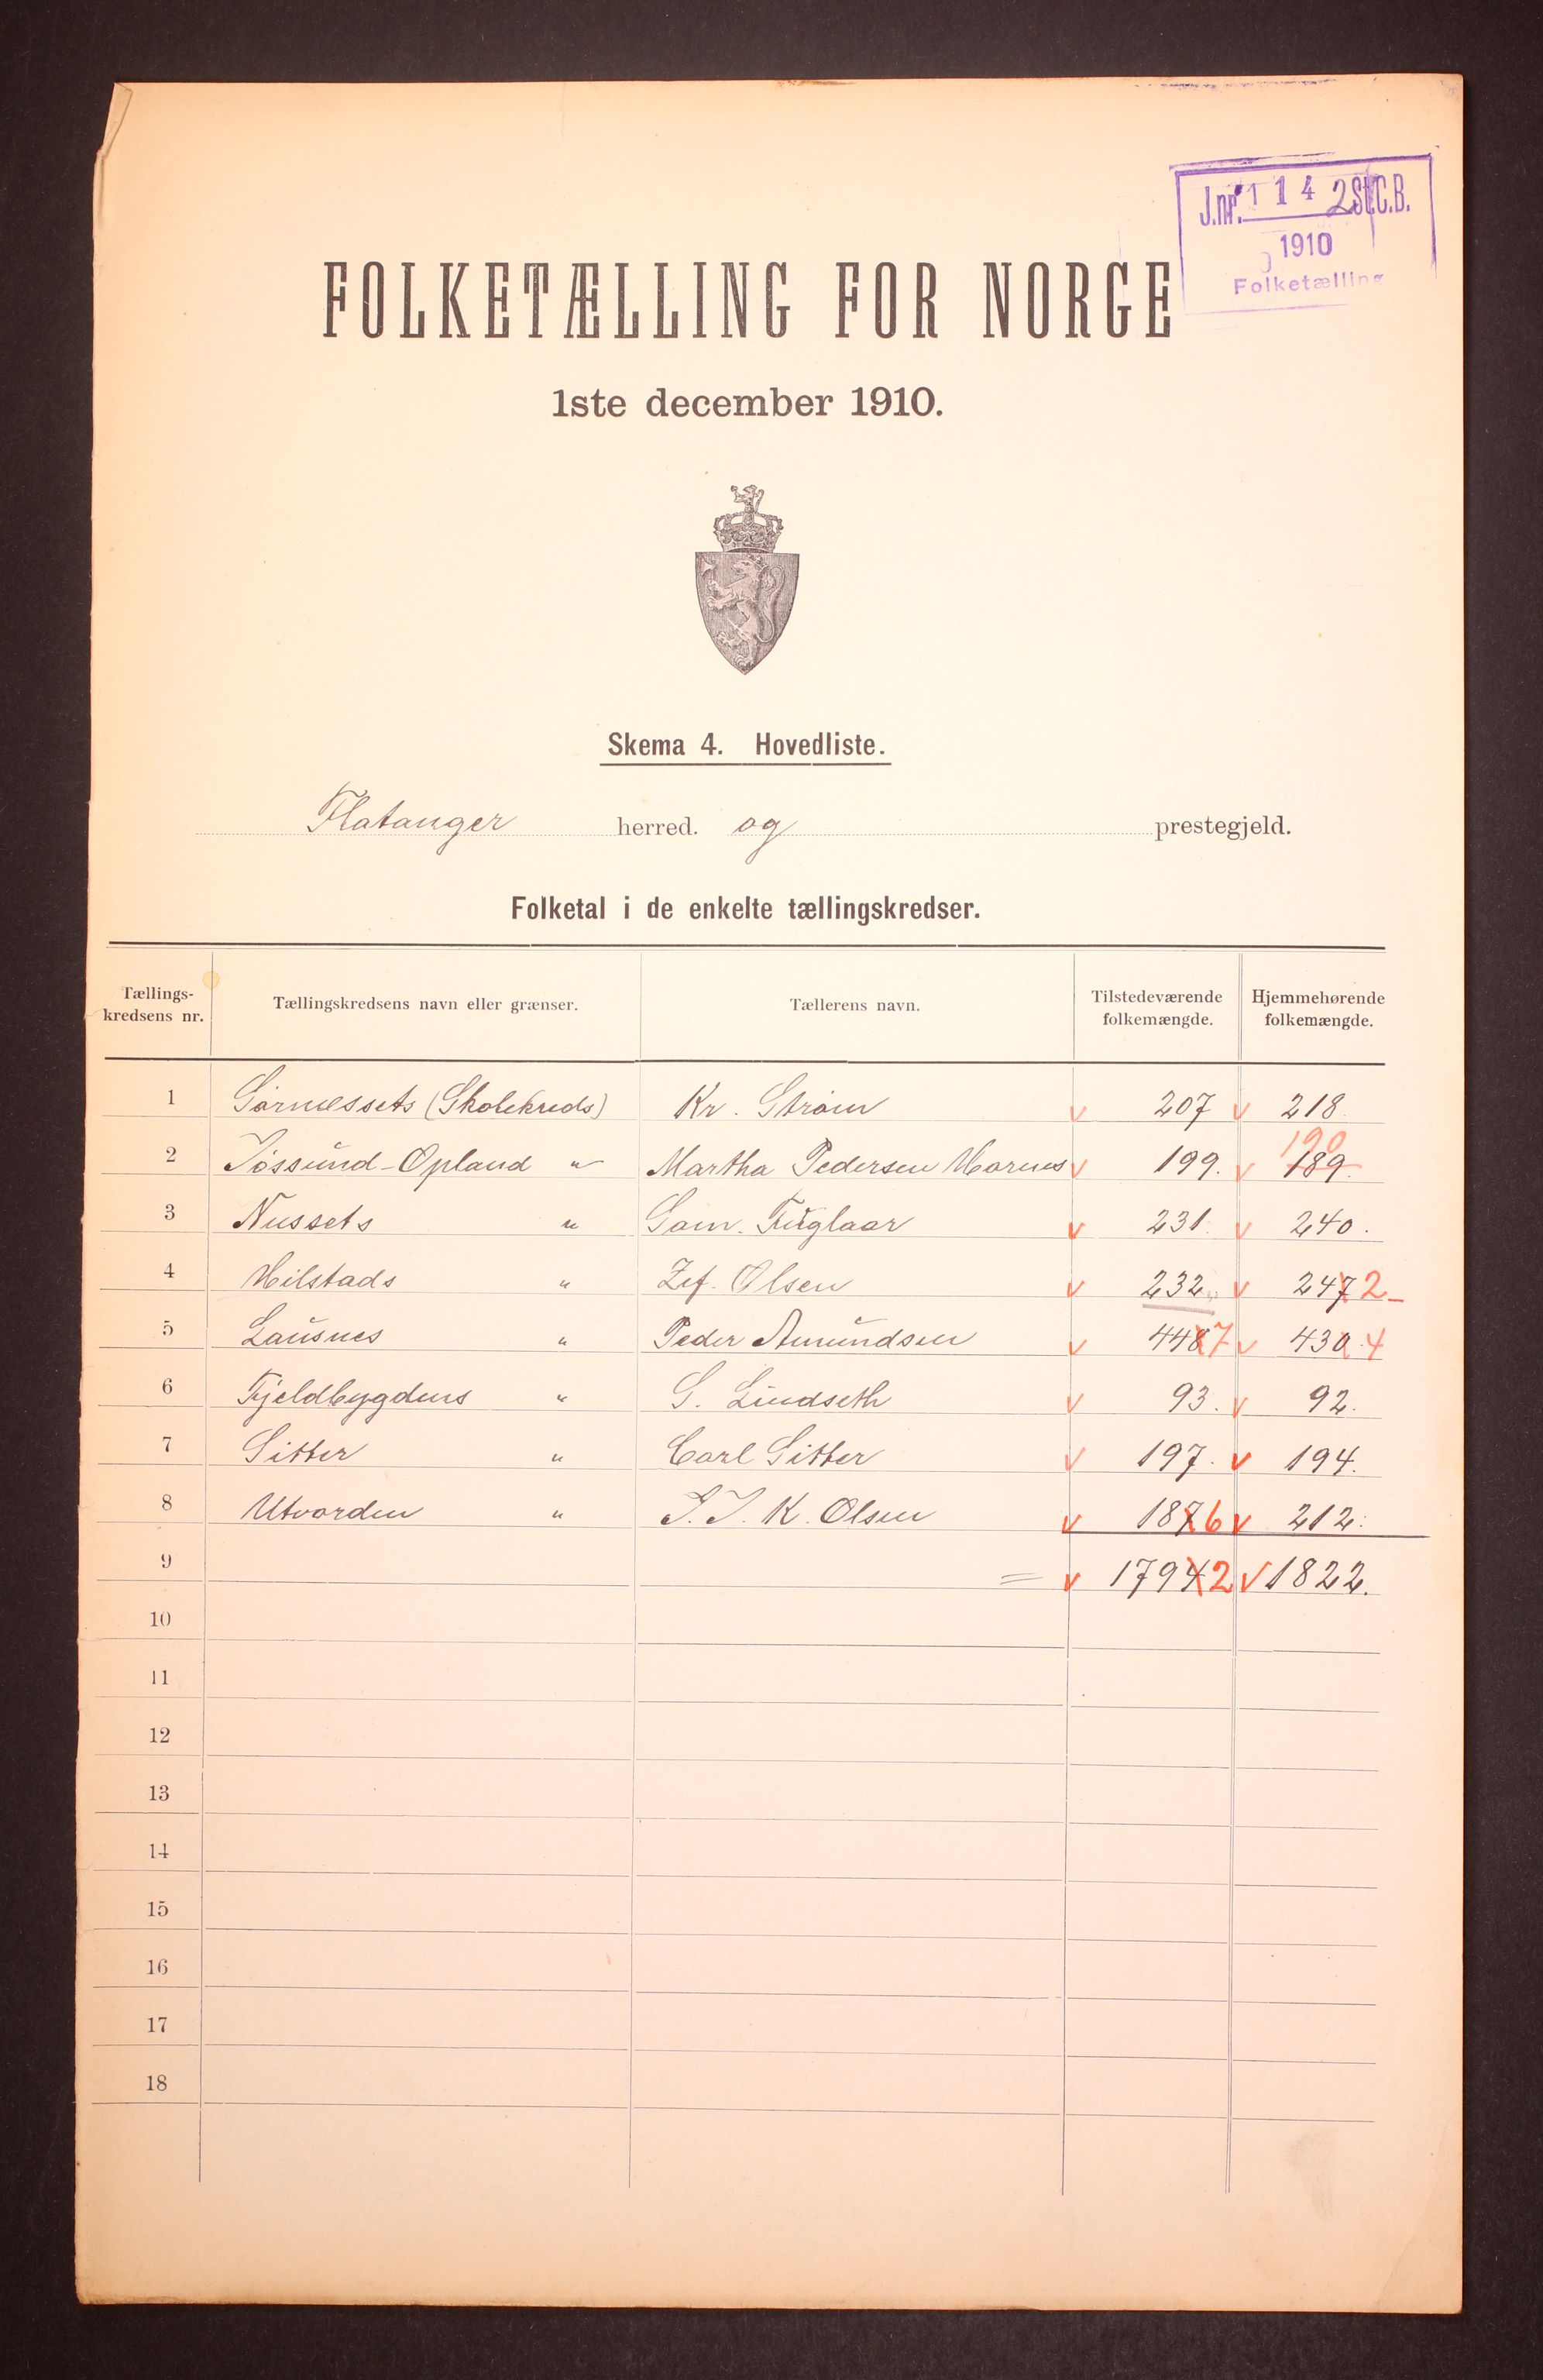 J.nr. 1142 St.C.B.
1910
Folketælling
FOLKETÆLLING FOR NORGE
1ste december 1910.
Skema 4. Hovedliste.
Flatanger herred. og prestegjeld.
Folketal i de enkelte tællingskredser.
Tællings-kredsens nr. Tællingskredsens navn eller grænser. Tællerens navn. Tilstedeværende folkemængde. Hjemmehørende folkemængde.
1 Sørnessets (Skolekreds) Kr. Strøm v 207 v 218.
2 Jøssund-Opland " Martha Pedersen Hornes v 199. v 189. 190
3 Nussets " Sam. Fuglaar v 231. v 240.
4 Hilstads " Zef. Olsen v 232. v 247 2
5 Lausnes " Peder Amundsen v 448 7 v 430. 4
6 Fjeldbygdens " S. Lindseth v 93. v 92.
7 Sitter " Carl Sitter v 197. v 194.
8 Utvorden " J. J. K. Olsen v 187 6 v 212.
9 = v 1794 2 v 1822.
10
11
12
13
14
15
16
17
18